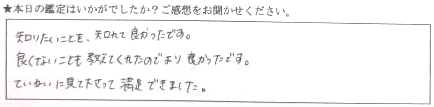 ★本日の鑑定はいかがでしたか?ご感想をお聞かせください。
知りたいことを、知れて良かったです。
良くないことも教えてくれたのでより良かったです。
ていねいに見て下さって満足できました。